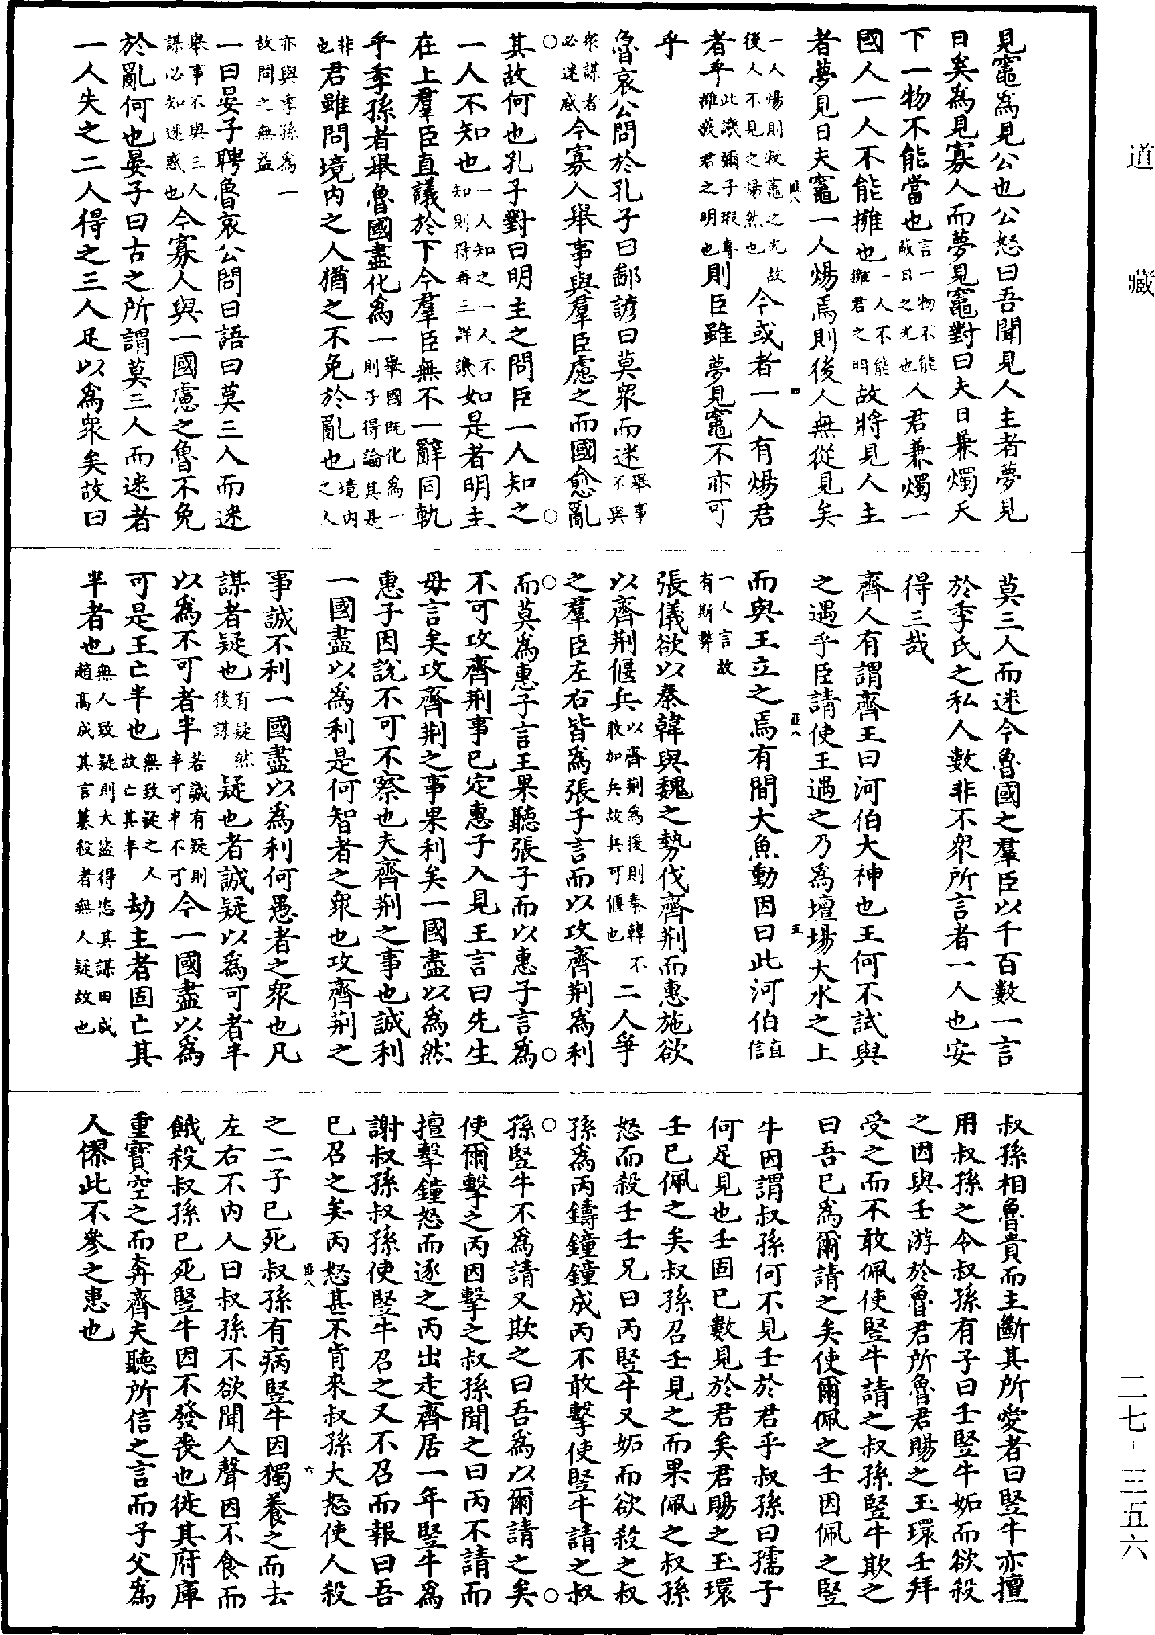 道藏
二七-三五六
見竈為見公也公怒曰吾聞見人主者夢見
日矣為見寡人而夢見竈對曰夫日兼燭天
下一物不能當也言一物不能蔽日之光也人君兼燭一
國人一人不能擁也一人不能擁君之明故將見人主
者夢見日夫竈一人煬焉則後人無從見矣
一人煬則蔽竈之光故後人不見之煬然也今或者一人有煬君
者乎此譏彌子瑕專擁蔽君之明也則臣雖夢見竈不亦可
乎
魯哀公問於孔子曰鄙諺曰莫衆而迷舉事不與
衆謀者必迷惑今寡人舉事與羣臣慮之而國愈亂
其故何也孔子對曰明主之問臣一人知之
一人不知也一人知之一人不知則得再三詳議如是者明主
在上羣臣直議於下今羣臣無不一辭同軌
乎季孫者舉魯國盡化為一舉國既化為一則子得論其是
非也君雖問境內之人猶之不免於亂也境內之人
亦與季孫為一故問之無益
一曰晏子聘魯哀公問曰語曰莫三人而迷
舉事不與三人謀必知迷惑也今寡人與一國慮之魯不免
於亂何也晏子曰古之所謂莫三人而迷者
一人失之二人得之三人足以為衆矣故曰
莫三人而迷今魯國之羣臣以千百數一言
於季氏之私人數非不衆所言者一人也安
得三哉
齊人有謂齊王曰河伯大神也王何不試與
之遇乎臣請使王遇之乃為壇場大水之上
而與王立之焉有間大魚動因曰此河伯直信
一人言故有斯弊
張儀欲以秦韓與魏之勢伐齊荆而惠施欲
以齊荆偃兵以齊荆為援則秦韓不敢加兵故兵可偃也二人爭
之羣臣左右皆為張子言而以攻齊荆為利
而莫為惠子言王果聽張子而以惠子言為
不可攻齊荆事已定惠子入見王言曰先生
毋言矣攻齊荆之事果利矣一國盡以為然
惠子因說不可不察也夫齊荆之事也誠利
一國盡以為利是何智者之衆也攻齊荆之
事誠不利一國盡以為利何愚者之衆也凡
謀者疑也有疑然後謀疑也者誠疑以為可者半
以為不可者半若誠有疑則半可半不可今一國盡以為
可是王亡半也無致疑之人故亡其半劫主者固亡其
半者也無人致疑則大盜得恣其謀田成趙高成其言纂殺者無人疑故也
叔孫相魯貴而主斷其所愛者曰豎牛亦擅
用叔孫之令叔孫有子曰壬豎牛妬而欲殺
之因與壬游於魯君所魯君賜之玉環壬拜
受之而不敢佩使豎牛請之叔孫豎牛欺之
曰吾已為爾請之矣使爾佩之壬因佩之豎
牛因謂叔孫何不見壬於君乎叔孫曰孺子
何足見也壬固已數見於君矣君賜之玉環
壬已佩之矣叔孫召壬見之而果佩之叔孫
怒而殺壬壬兄曰丙豎牛又妬而欲殺之叔
孫為丙鑄鐘鐘成丙不敢擊使豎牛請之叔
孫豎牛不為請又欺之曰吾為以爾請之矣
使爾擊之丙因擊之叔孫聞之曰丙不請而
擅擊鐘怒而逐之丙出走齊居一年豎牛為
謝叔孫叔孫使豎牛召之又不召而報曰吾
已召之矣丙怒甚不肯來叔孫大怒使人殺
之二子已死叔孫有病豎牛因獨養之而去
左右不內人曰叔孫不欲聞人聲因不食而
餓殺叔孫已死豎牛因不發喪也徙其府庫
重寶空之而奔齊夫聽所信之言而子父為
人僇此不參之患也